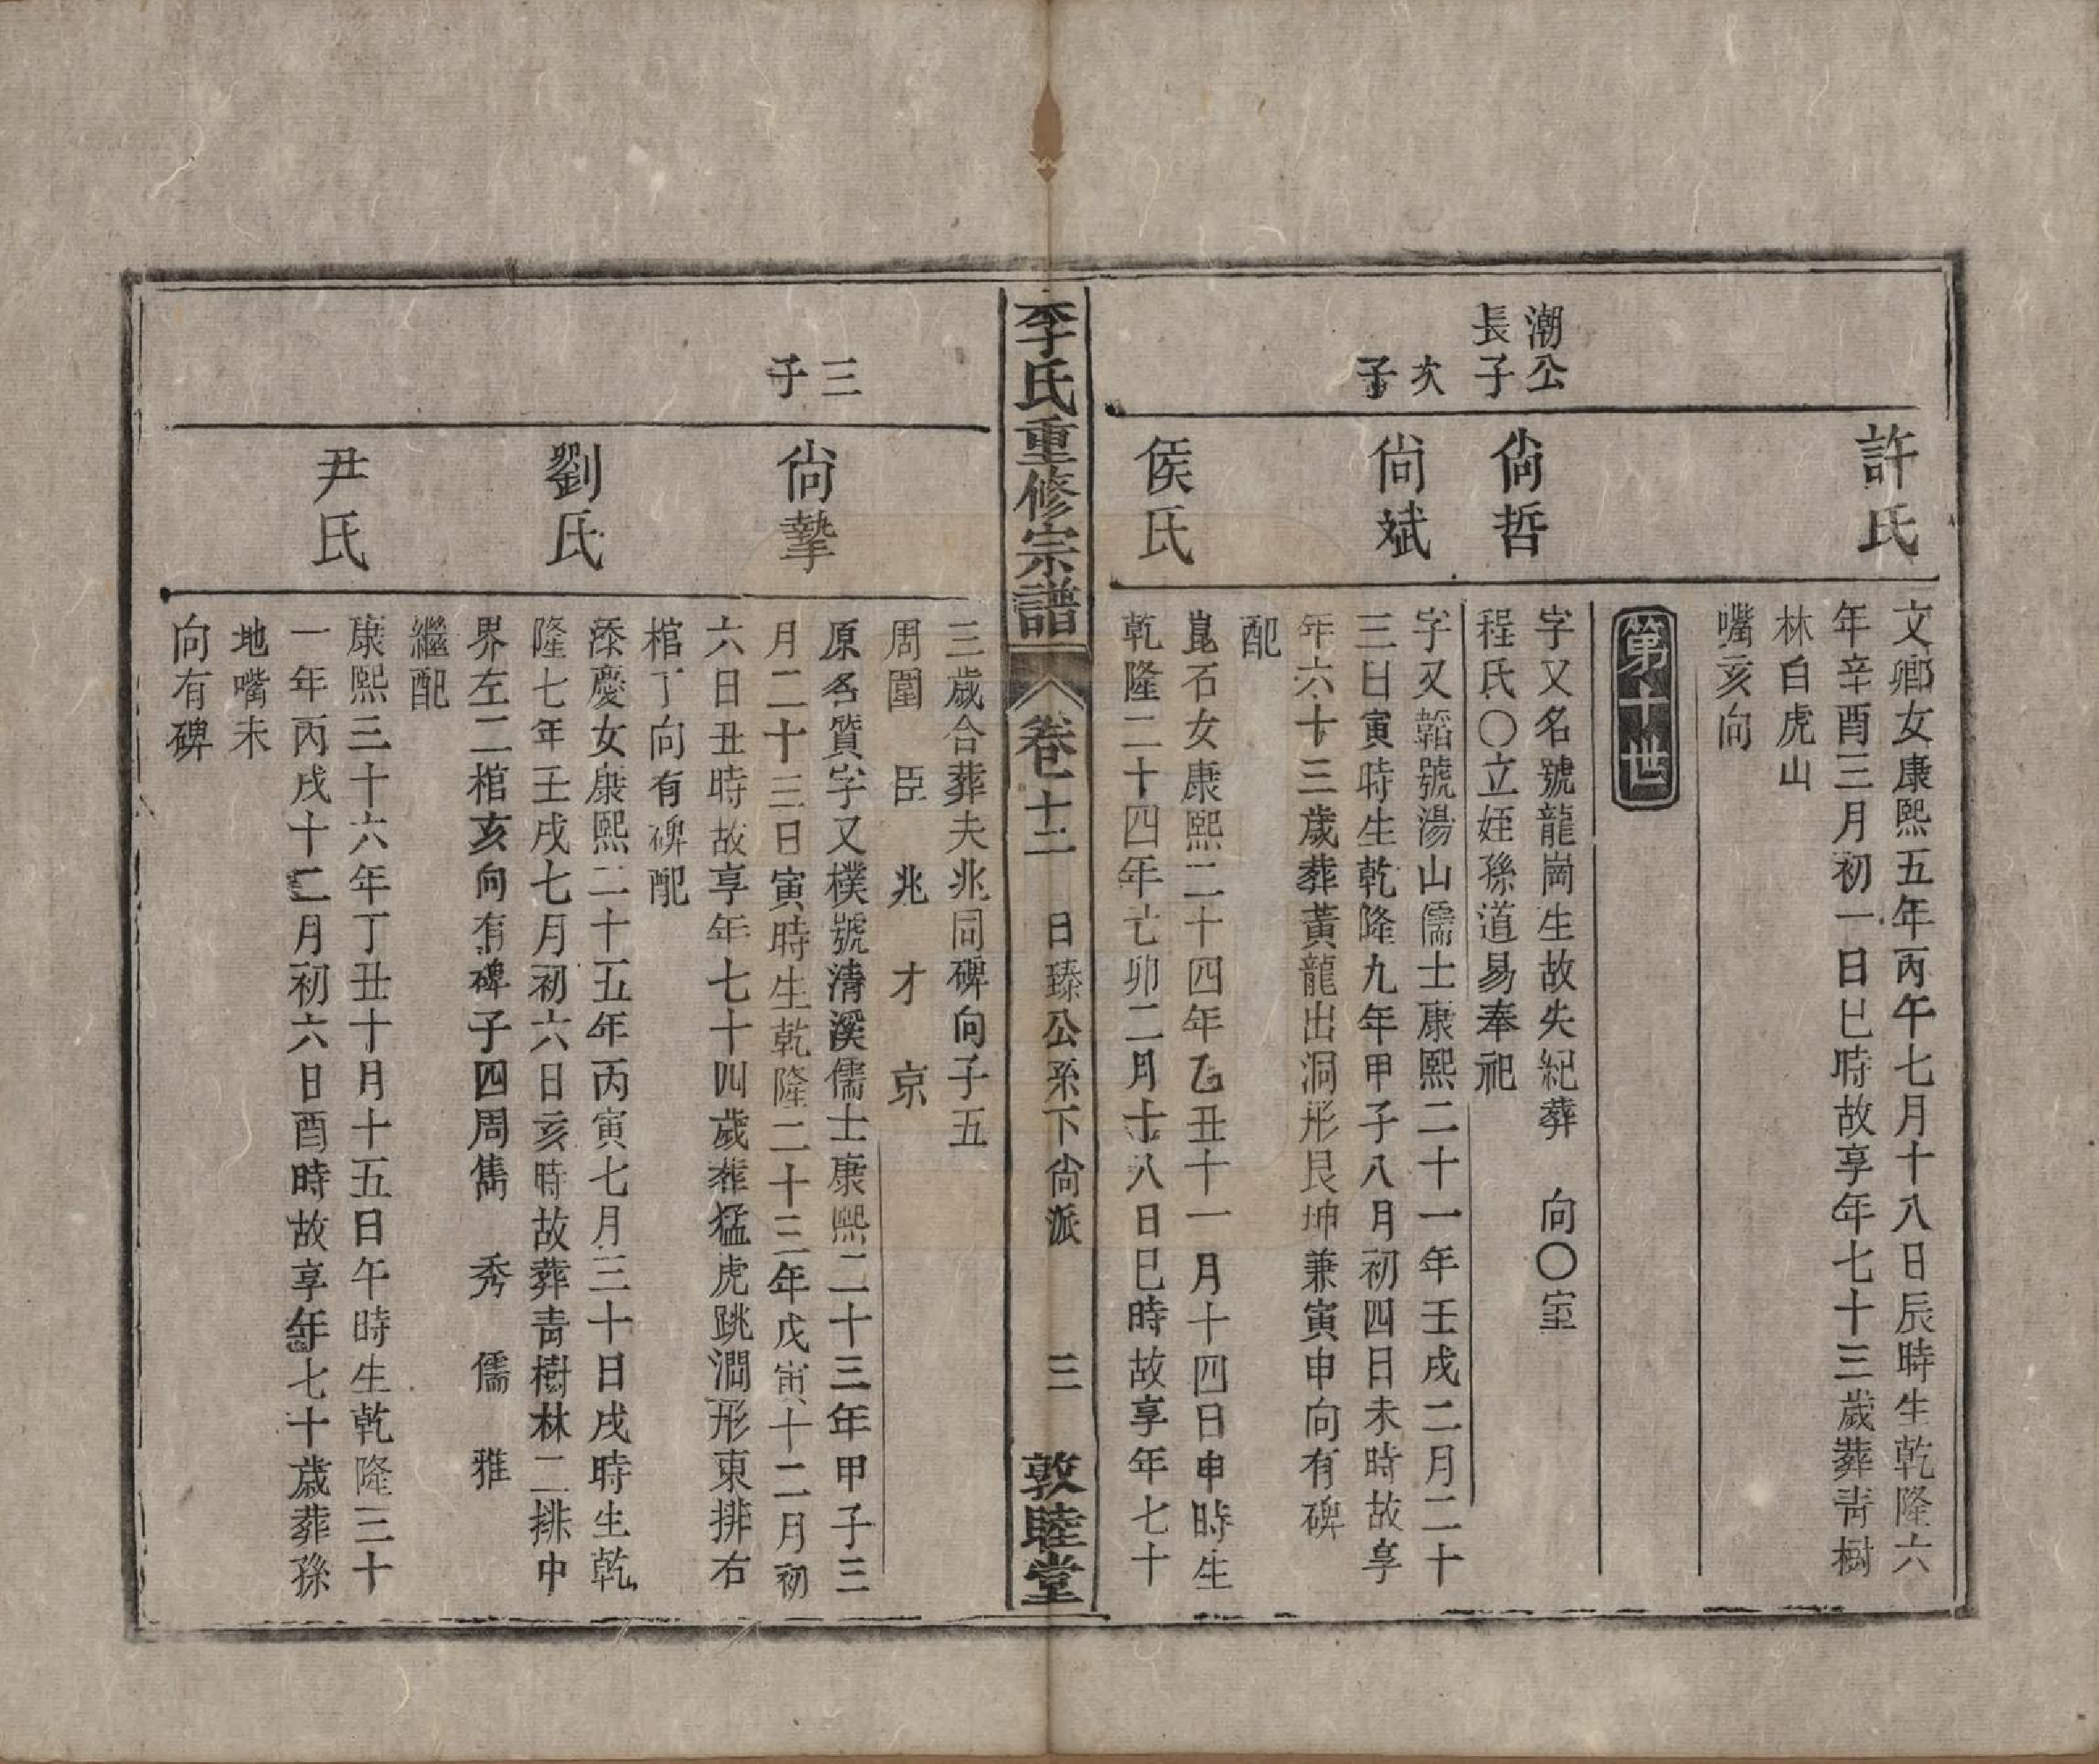 許氏
文卿女康熙五年丙午七月十八日辰時生乾隆六
年辛酉三月初一日巳時故享年七十三歲葬靑樹
林白虎山
嘴亥向
第十世
潮公
長子
尙哲
字又名號龍崗生故失紀葬 向○室
程氏○立姪孫道易奉祀
次
子
尙斌
字又韜號湯山儒士康熙二十一年壬戌二月二十
三日寅時生乾隆九年甲子八月初四日未時故享
年六十三歲葬黃龍出洞形艮坤兼寅申向有碑
配
侯氏
崑石女康熙二十四年乙丑十一月十四日申時生
乾隆二十四年七卯二月十八日巳時故享年七十
李氏重修宗譜 卷十二 日臻公系下尙派 三 敦睦堂
三歲合葬夫兆同碑向子五
周圍 臣 兆 才 京
三
子
尙摯
原名質字又樸號清溪儒士康熙二十三年甲子三
月二十三日寅時生乾隆二十三年戊寅十二月初
六日丑時故享年七十四歲葬猛虎跳澗形東排右
棺丁向有碑配
劉氏
添慶女康熙二十五年丙寅七月三十日戌時生乾
隆七年壬戌七月初六日亥時故葬靑樹林二排中
界左二棺亥向有碑子四周儁 秀 儒 雅
繼配
尹氏
康熙三十六年丁丑十月十五日午時生乾隆三十
一年丙戌十二月初六日酉時故享年七十歲葬孫
地嘴未
向有碑